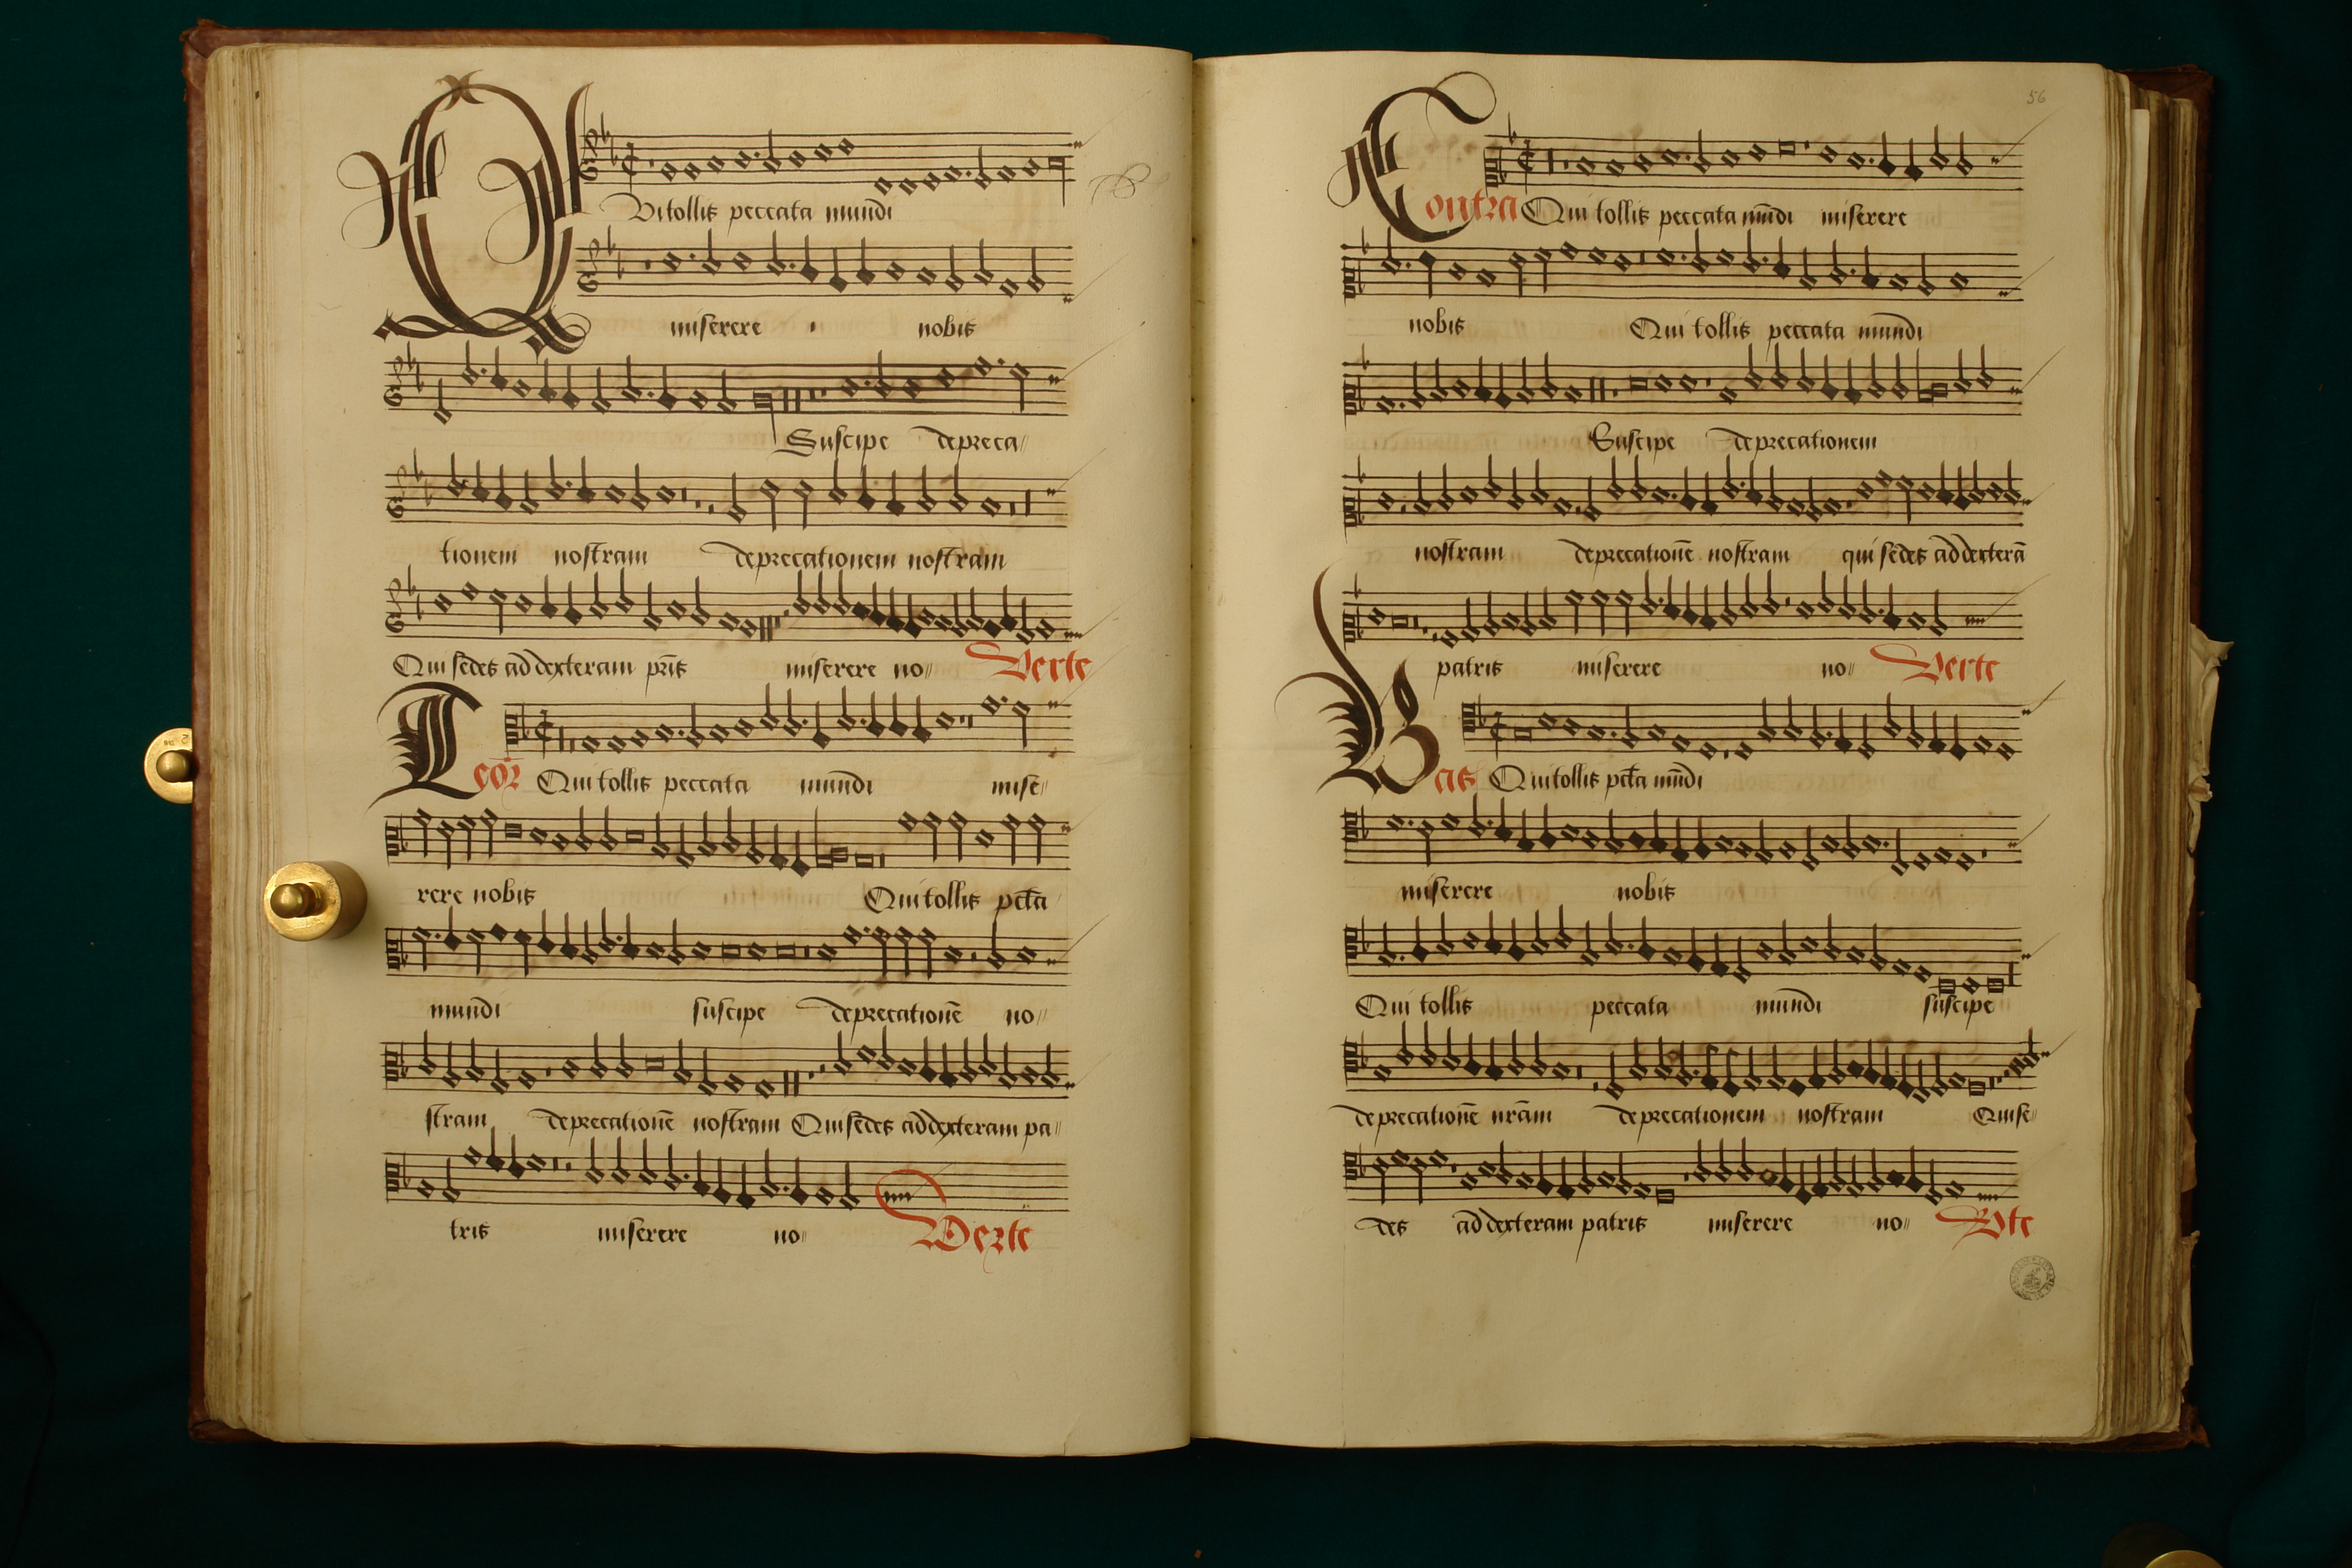 QVi tollis peccata mundi
miserere nobis
Suscipe depreca〃
tionem nostram deprecationem nostram
Qui sedes ad dexteram pris miserere no〃 Verte
Teor Qui tollis peccata mundi mise〃
rere nobis Qui tollis pcta
mundi suscipe deprecationē no〃
stram deprecationē nostram Qui sedes ad dexteram pa〃
tris miserere no〃 Verte
56
Contra Qui tollis peccata mūdi miserere
nobis Qui tollis peccata mundi
Suscipe deprecationem
nostram deprecationē nostram qui sedes ad dexterā
patris miserere no〃 Verte
Bas Qui tollis pcta mūdi
miserere nobis
Qui tollis peccata mundi suscipe
deprecationē nrām deprecationem nostram Qui se〃
des ad dexteram patris miserere no〃 Vte